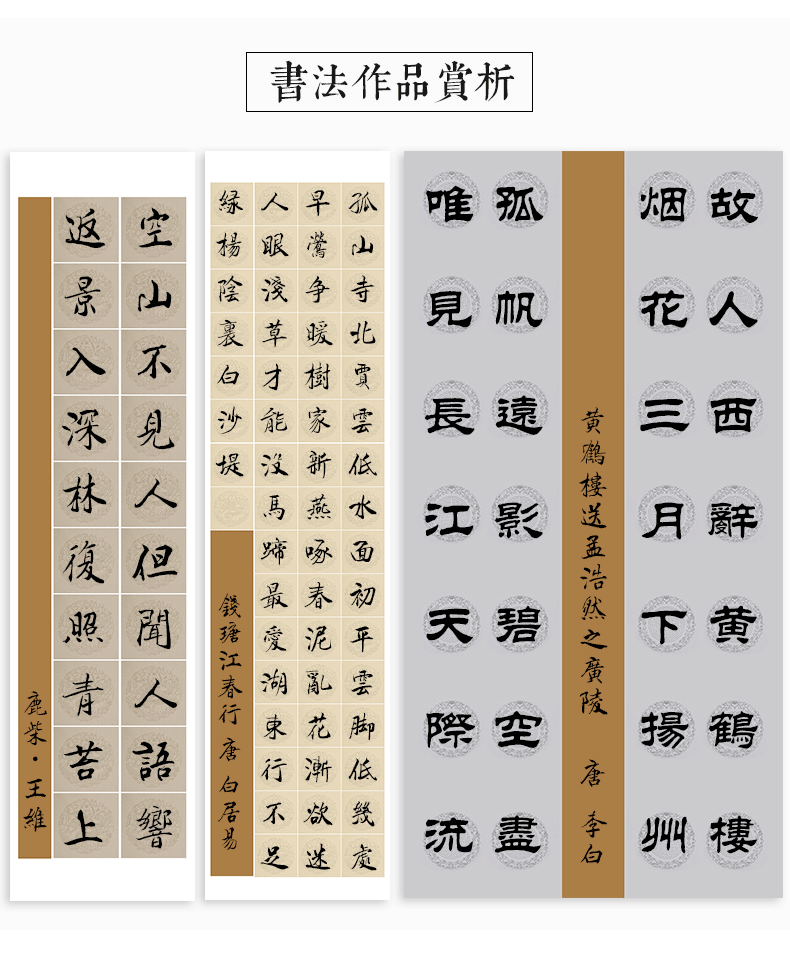 書法作品賞析
空山不見人但聞人語響
返景入深林復照青苔上
鹿柴·王維
孤山寺北賈雲低水面初平雲脚低幾處
早鶯争暖樹家新燕啄春泥亂花漸欲迷
人眼淺草才能沒馬蹄最愛湖東行不足
縁楊陰裏白沙堤
錢瑭江春行 唐 白居易
故人西辭黄鶴樓
烟花三月下揚州
黄鶴樓送孟浩然之廣陵 唐 李白
孤帆遠影碧空盡
唯見長江天際流